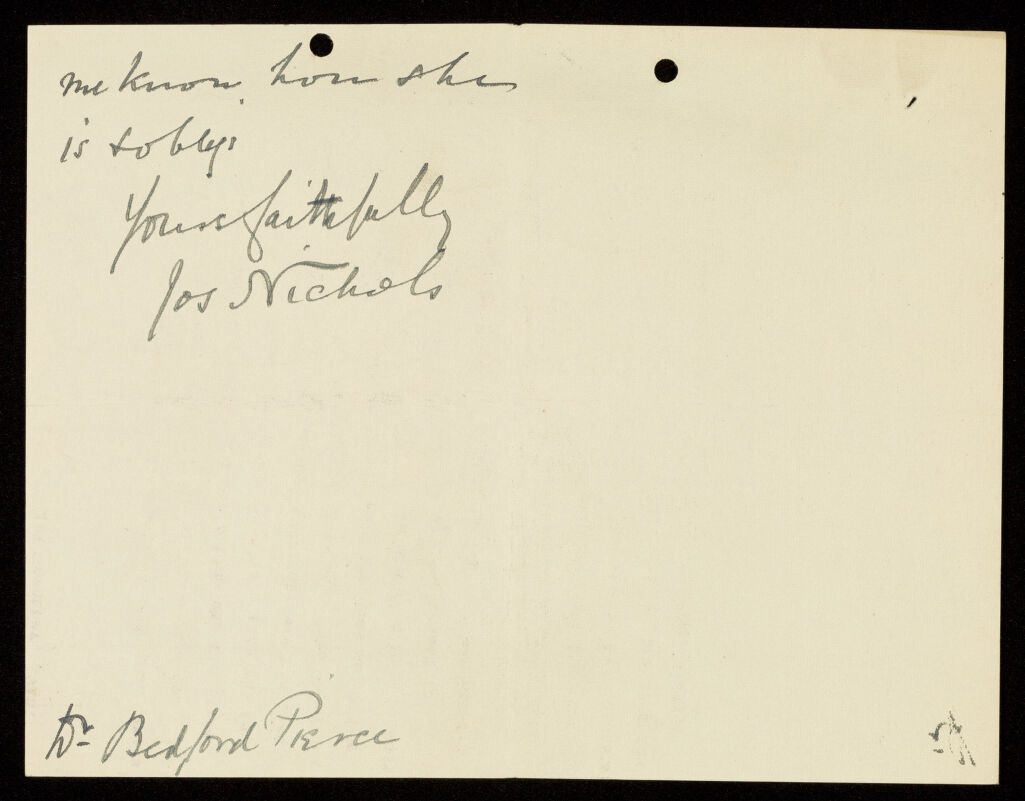 me know how she
is & oblige
Yours faithfully
Jos Nichols
Dr Bedford Pierce